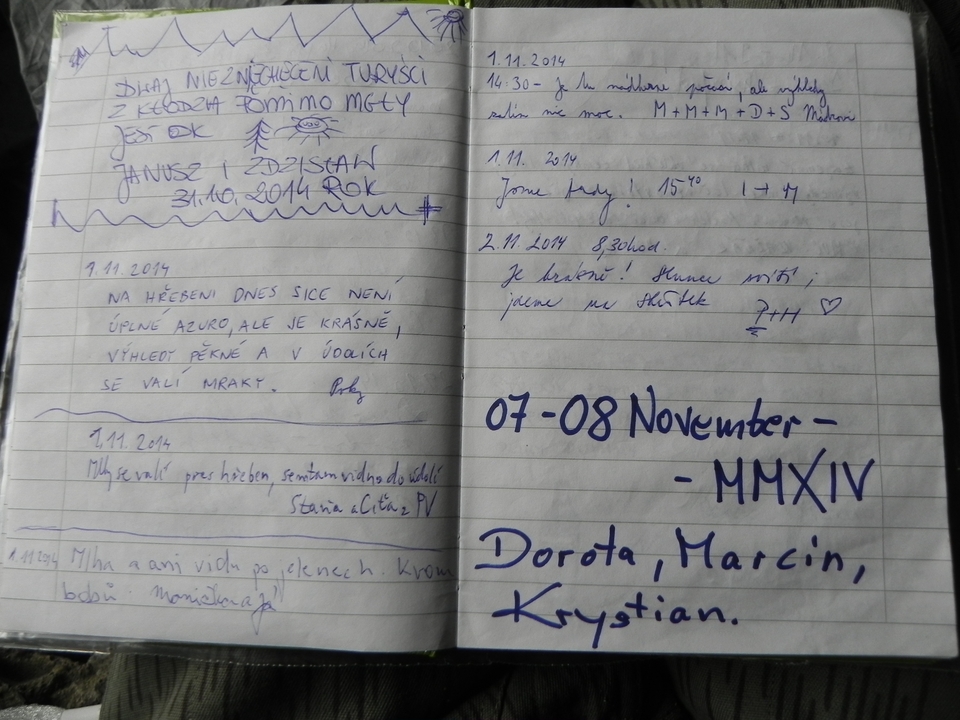 DWAJ NIEZNIĘCHĘCENI TURYŚCI
Z KŁODZKA POMIMO MGŁY
JEST OK
JANUSZ I ZDZISŁAW
31.10.2014 ROK
1.11.2014
NA HŘEBENI DNES SICE NENÍ
ÚPLNÉ AZURO, ALE JE KRÁSNĚ,
VÝHLEDY PĚKNÉ A V ÚDOLÍCH
SE VALÍ MRAKY.
1.11.2014
Mlhy se valí přes hřeben, semtam vidno do údolí
Staňa a Citá z PV
1.11.2014 Mlha a ani vidu po jelenech. Krom
bobů. a já
1.11.2014
14:30 - Je tu nádherné počasí, ale výhledy
zatím nic moc. M+M+M+D+S
1.11. 2014
Jsme tady! 15⁴⁰ I + M
2.11.2014 8,30hod.
Je krásně! Slunce svítí,
jdeme na
P+H ♡
07-08 November -
- MMXIV
Dorota, Marcin,
Krystian.